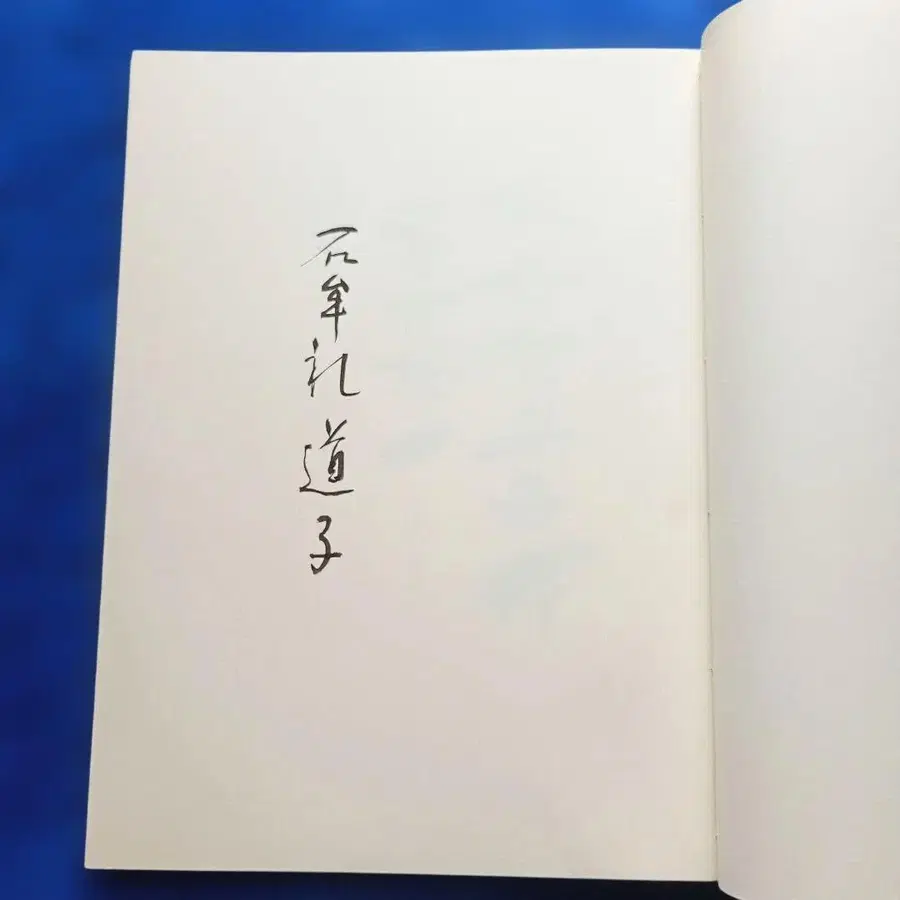 石牟礼道子